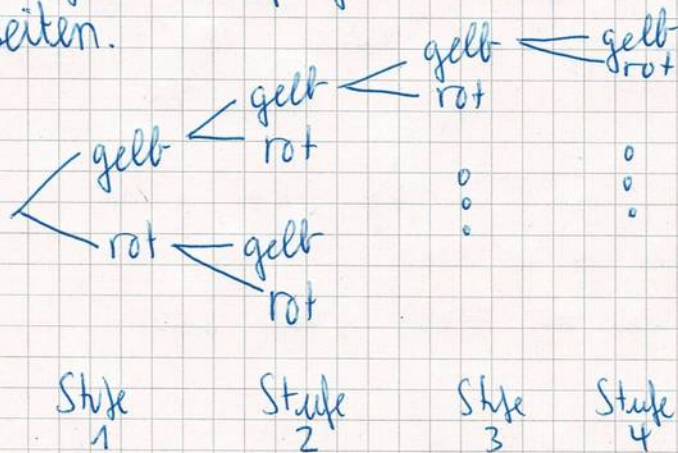 eiten.
gelb gelb
gelb rot
gelb rot
gelb rot
rot gelb
rot
Stufe Stufe Stufe Stufe
1 2 3 4